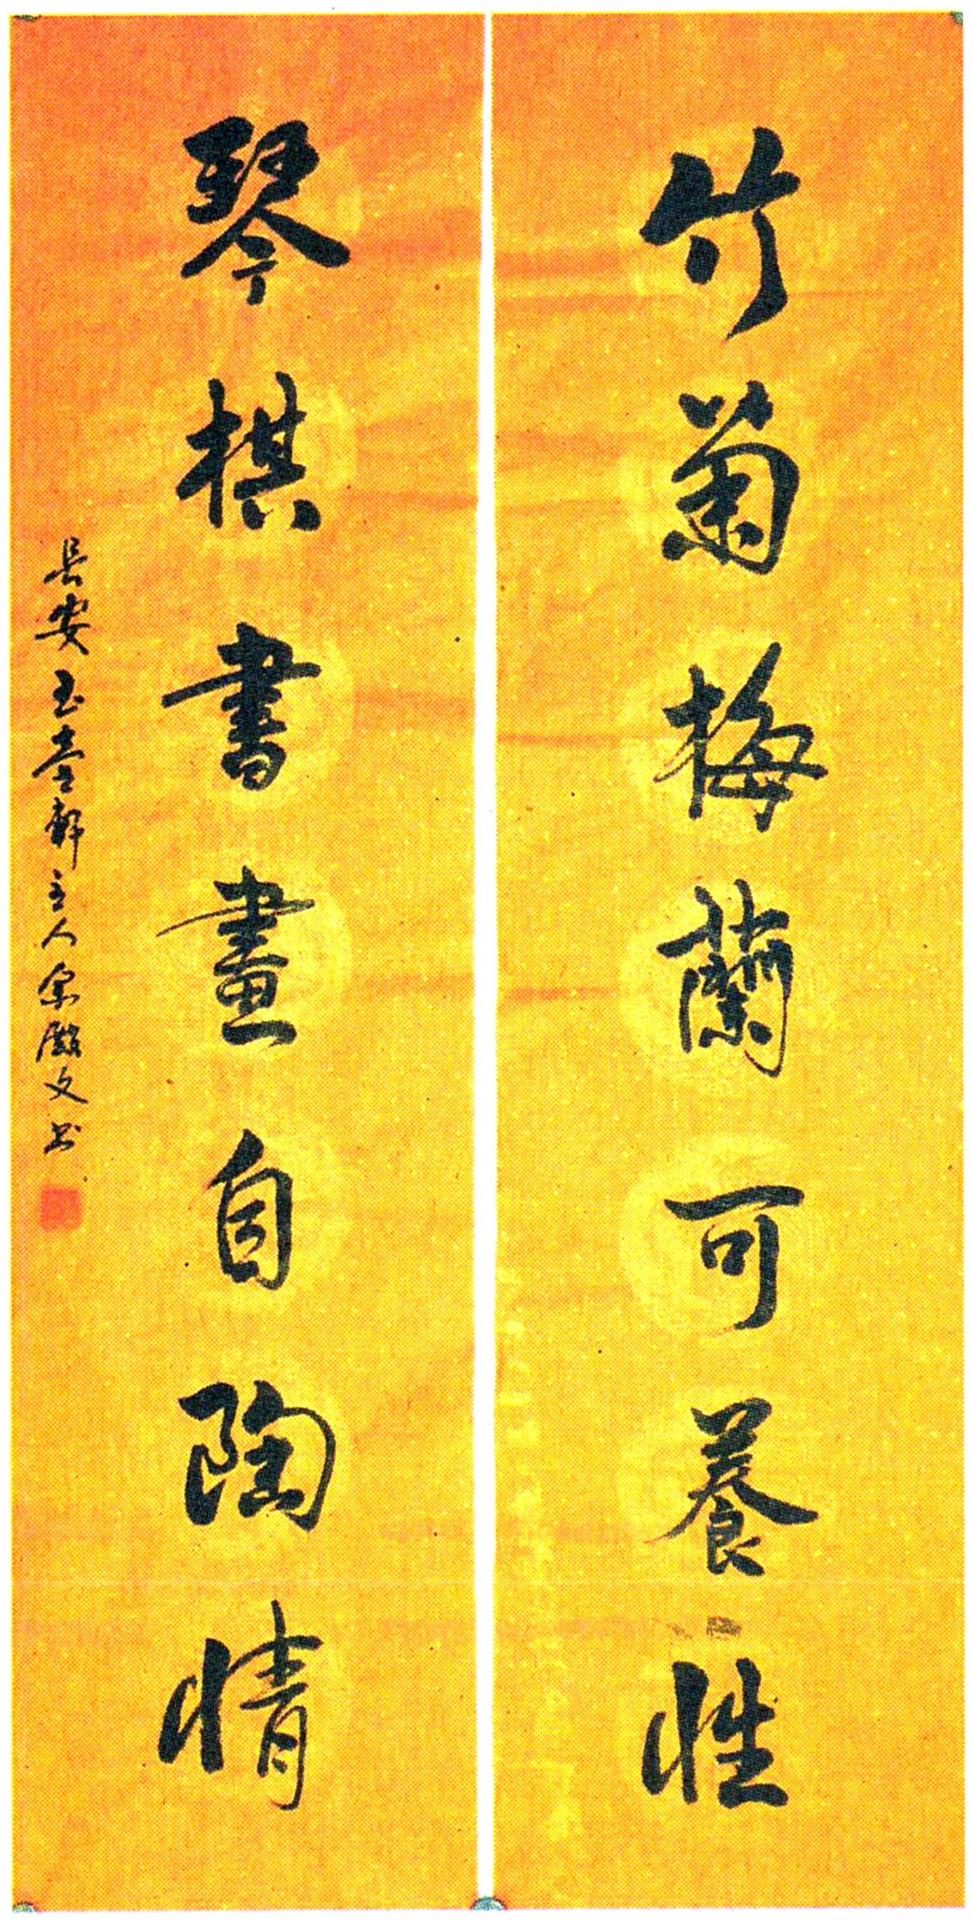 竹菊梅蘭可養性
琴棋書畫自陶情
長安玉壺軒主人宗殿文书